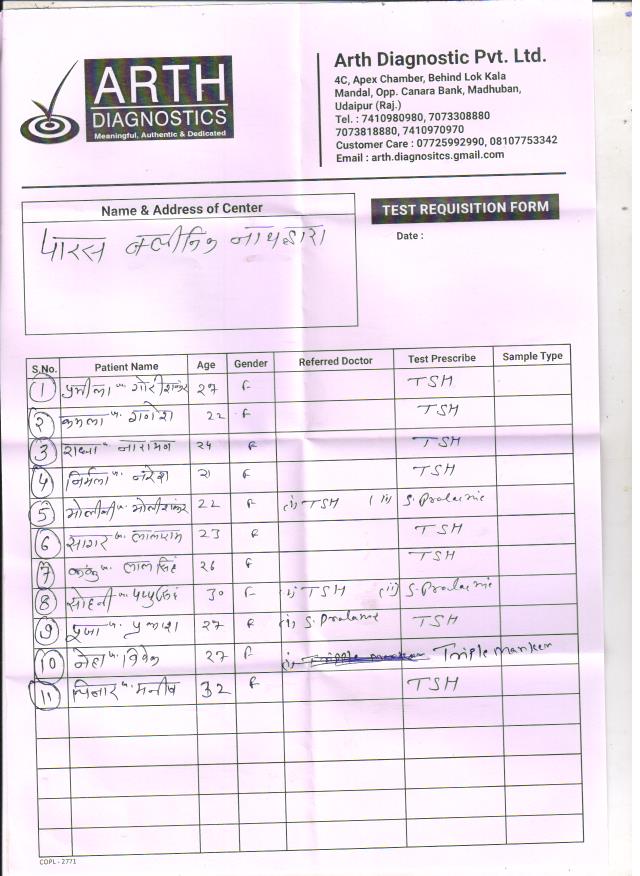 ARTH
DIAGNOSTICS
Meaningful, Authentic & Dedicated
Arth Diagnostic Pvt. Ltd.
4C, Apex Chamber, Behind Lok Kala
Mandal, Opp. Canara Bank, Madhuban,
Udaipur (Raj.)
Tel. : 7410980980, 7073308880
7073818880, 7410970970
Customer Care : 07725992990, 08107753342
Email : arth.diagnositcs.gmail.com
Name & Address of Center
पारस क्लीनिक नाथद्वारा
TEST REQUISITION FORM
Date :
S.No. Patient Name Age Gender Referred Doctor Test Prescribe Sample Type
1 प्रमीला गोरीशंकर 27 F TSH
2 कमला गणेश 22 F TSH
3 नारायण 24 F TSH
4 निर्मला नरेश F TSH
5 22 F (i) TSH (ii) S. Prolacnic
6 सागर लालराम 23 F TSH
7 लालसिंह 26 F TSH
8 सोहनी 30 F i) TSH (ii) S. Prolacnic
9 पूजा प्रकाश 27 F (i) S. Prolacnic TSH
10 नेहा विवेक 27 F Triple marker
11 32 F TSH
COPL - 2771